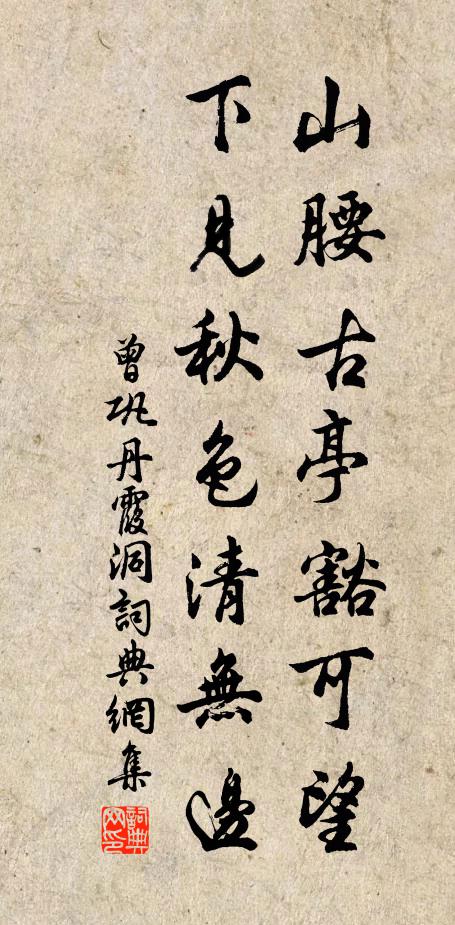 山腰古亭豁可望
下見秋色清無邊
曾巩丹霞洞詞典網集
詞典网印